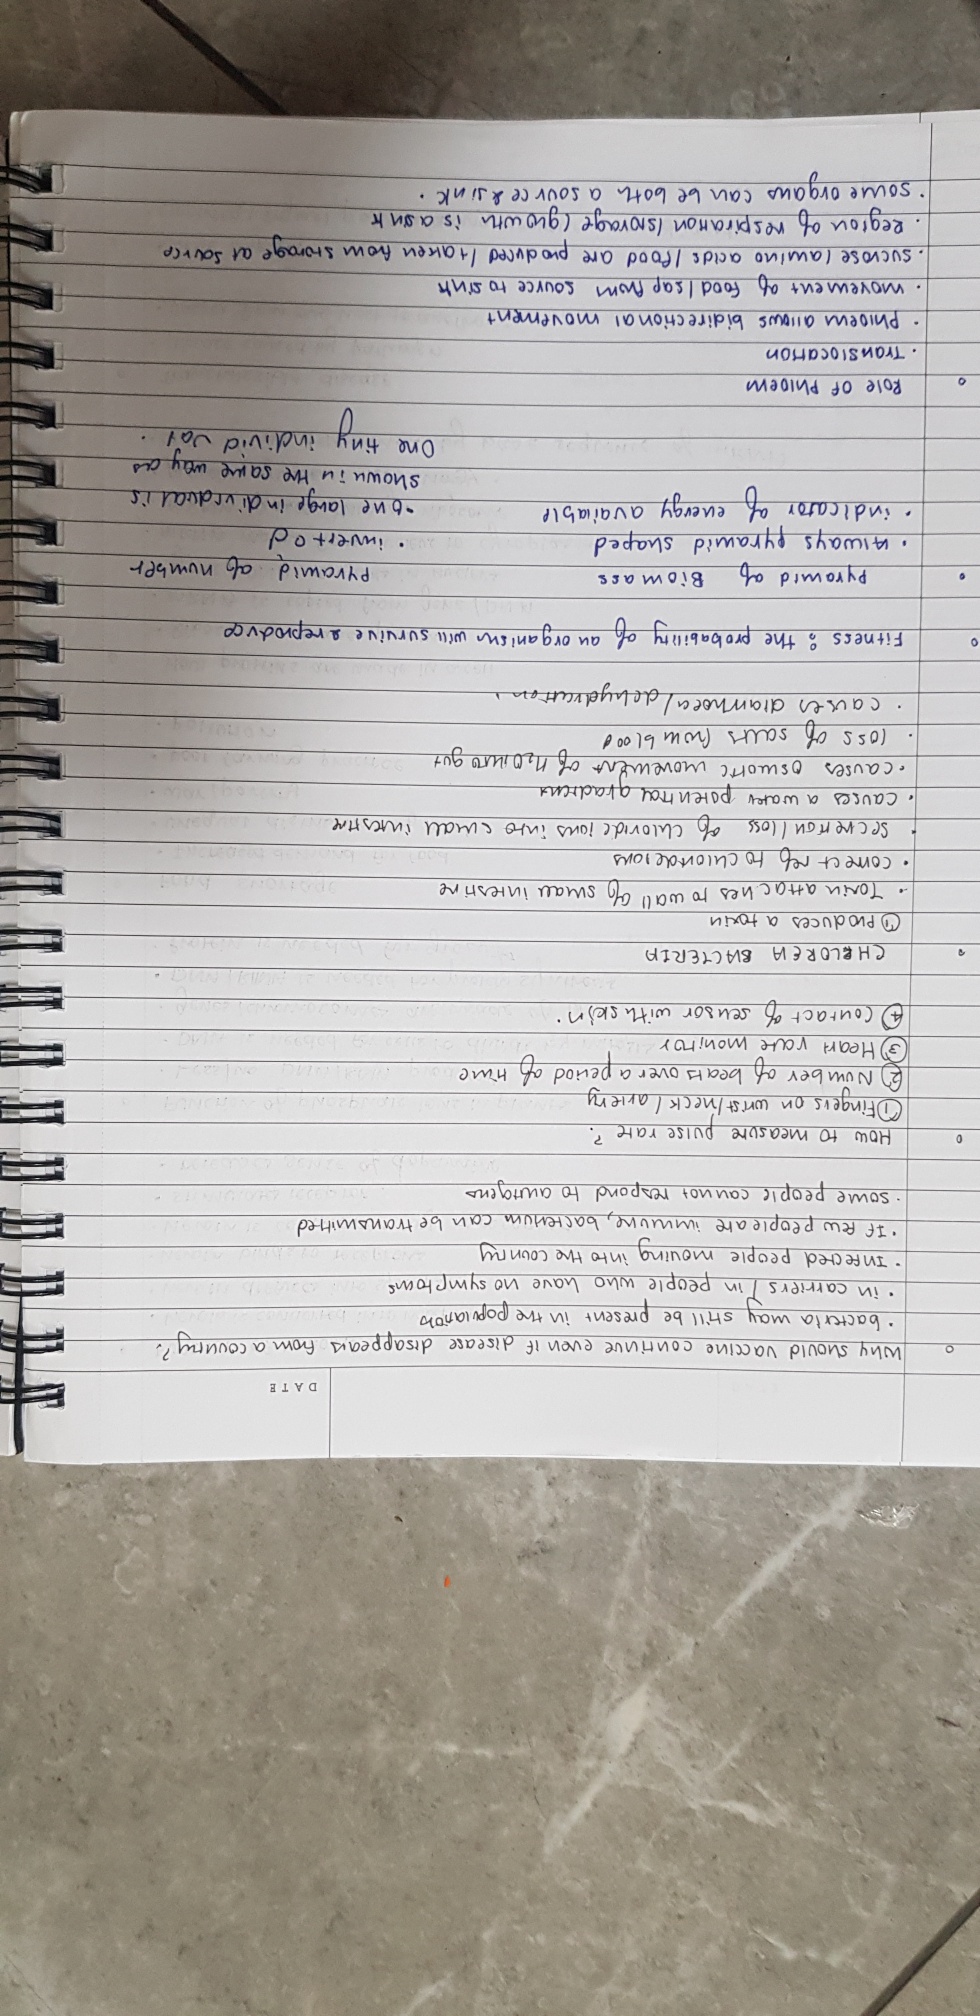 DATE
Why should vaccine continue even if disease disappears from a country?
• bacteria may still be present in the population
• in carriers / in people who have no symptoms
• Infected people moving into the country
• If few people are immune, bacterium can be transmitted
• some people cannot respond to antigens
How to measure pulse rate?
① Fingers on wrist/neck/artery
② Number of beats over a period of time
③ Heart rate monitor
④ Contact of sensor with skin.
CHELOREA BACTERIA
① Produces a toxin
• Toxin attaches to wall of small intestine
• correct ref to chloride ions
• Secretion/loss of chloride ions into small intestine
• causes a water potential gradient
• causes osmotic movement of H2O into gut
• loss of salts from blood
• causes diarrhoea/dehydration.
Fitness: the probability of an organism will survive & reproduce
Pyramid of Biomass    pyramid of number
• Always pyramid shaped    • inverted
• indicator of energy avaiable    • one large individual is
shown in the same way as
One tiny individual.
Role of Phloem
• Translocation
• Phloem allows bidirectional movement
• movement of food/sap from source to sink
• sucrose/amino acids/food are produced/taken from storage at source
• Region of respiration/storage/growth is a sink
• some organs can be both a source & sink.